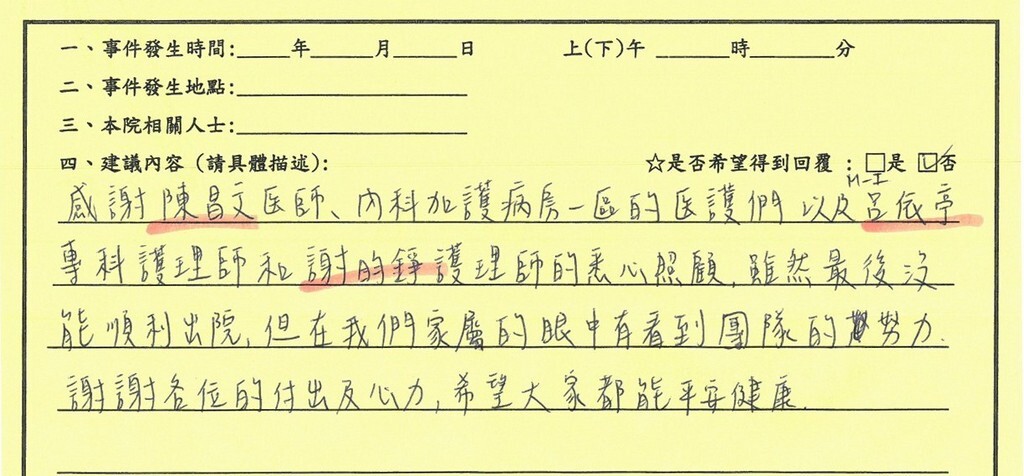 一、事件發生時間:_____年_____月_____日 上(下)午 ______時______分
二、事件發生地點:____________________
三、本院相關人士:____________________
四、建議內容 (請具體描述): ☆是否希望得到回覆 : □是 ☑否
M-I
感謝陳昌文医師、內科加護病房一區的医護們以及呂依亭
專科護理師和謝昀錚護理師的悉心照顧,雖然最後沒
能順利出院,但在我們家屬的眼中有看到團隊的努力.
謝謝各位的付出及心力,希望大家都能平安健康.